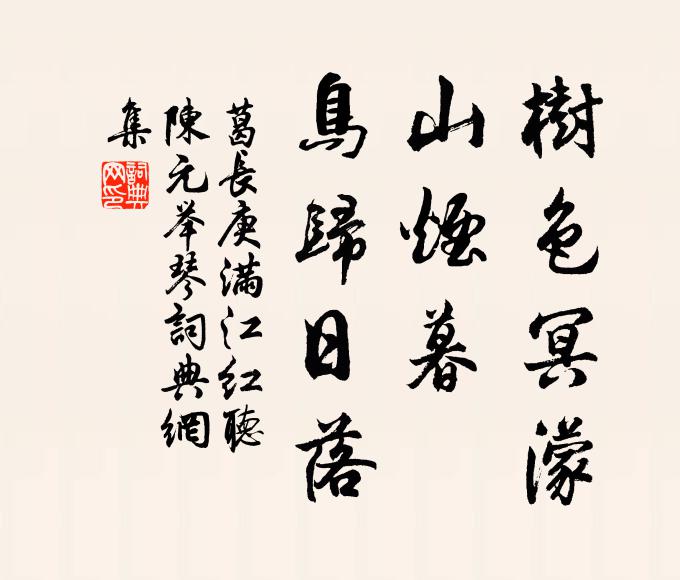 樹色冥濛
山煙暮
鳥歸日落
葛長庚滿江紅聽
陳元举琴詞典網
集
詞典
网印